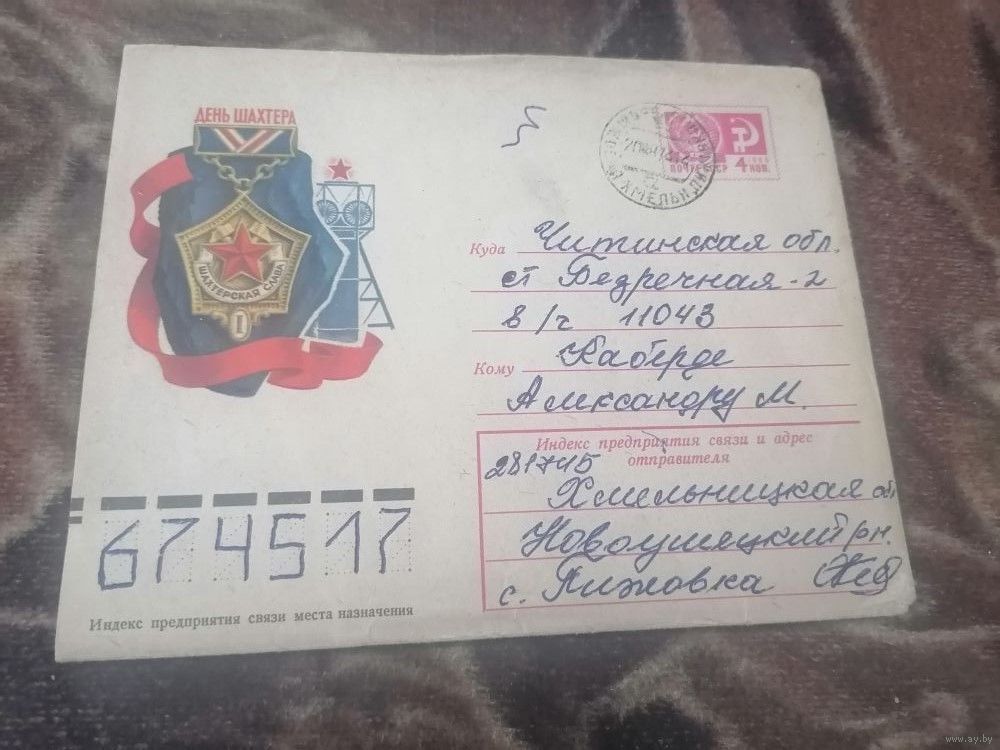 ДЕНЬ ШАХТЕРА
ШАХТЕРСКАЯ СЛАВА
I
ПОЧТА СССР
1966
4 КОП.
Куда Читинская обл.
ст Безречная-2
в/ч 11043
Кому Каберде
Александру М.
Индекс предприятия связи и адрес
отправителя
281745
Хмельницкая обл
Новоушицкий рн.
с. Пижовка
674517
Индекс предприятия связи места назначения
www.ay.by